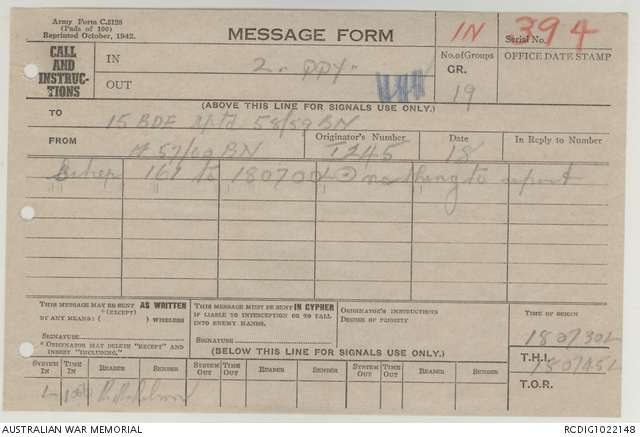 Army Form C.2128
(Pads of 100)
Reprinted October, 1942.
MESSAGE FORM
IN
Serial No. 394
CALL AND INSTRUCTIONS
IN
OUT
No. of Groups
GR.
19
OFFICE DATE STAMP
(ABOVE THIS LINE FOR SIGNALS USE ONLY.)
TO
15 BDE rptd 58/59 BN
FROM
57/60 BN
Originator's Number
Date
18
In Reply to Number
to 180700L nothing to report
THIS MESSAGE MAY BE SENT AS WRITTEN
(EXCEPT)
BY ANY MEANS ( ) WIRELESS
SIGNATURE
ORIGINATOR MAY DELETE "EXCEPT" AND
INSERT "INCLUDING."
THIS MESSAGE MUST BE SENT IN CYPHER
IF LIABLE TO INTERCEPTION OR TO FALL
INTO ENEMY HANDS.
SIGNATURE
ORIGINATOR'S INSTRUCTIONS
DEGREE OF PRIORITY
TIME OF ORIGIN
180730L
T.H.I.
180745L
T.O.R.
(BELOW THIS LINE FOR SIGNALS USE ONLY.)
SYSTEM IN TIME IN READER SENDER SYSTEM OUT TIME OUT READER SENDER SYSTEM OUT TIME OUT READER SENDER
AUSTRALIAN WAR MEMORIAL
RCDIG1022148